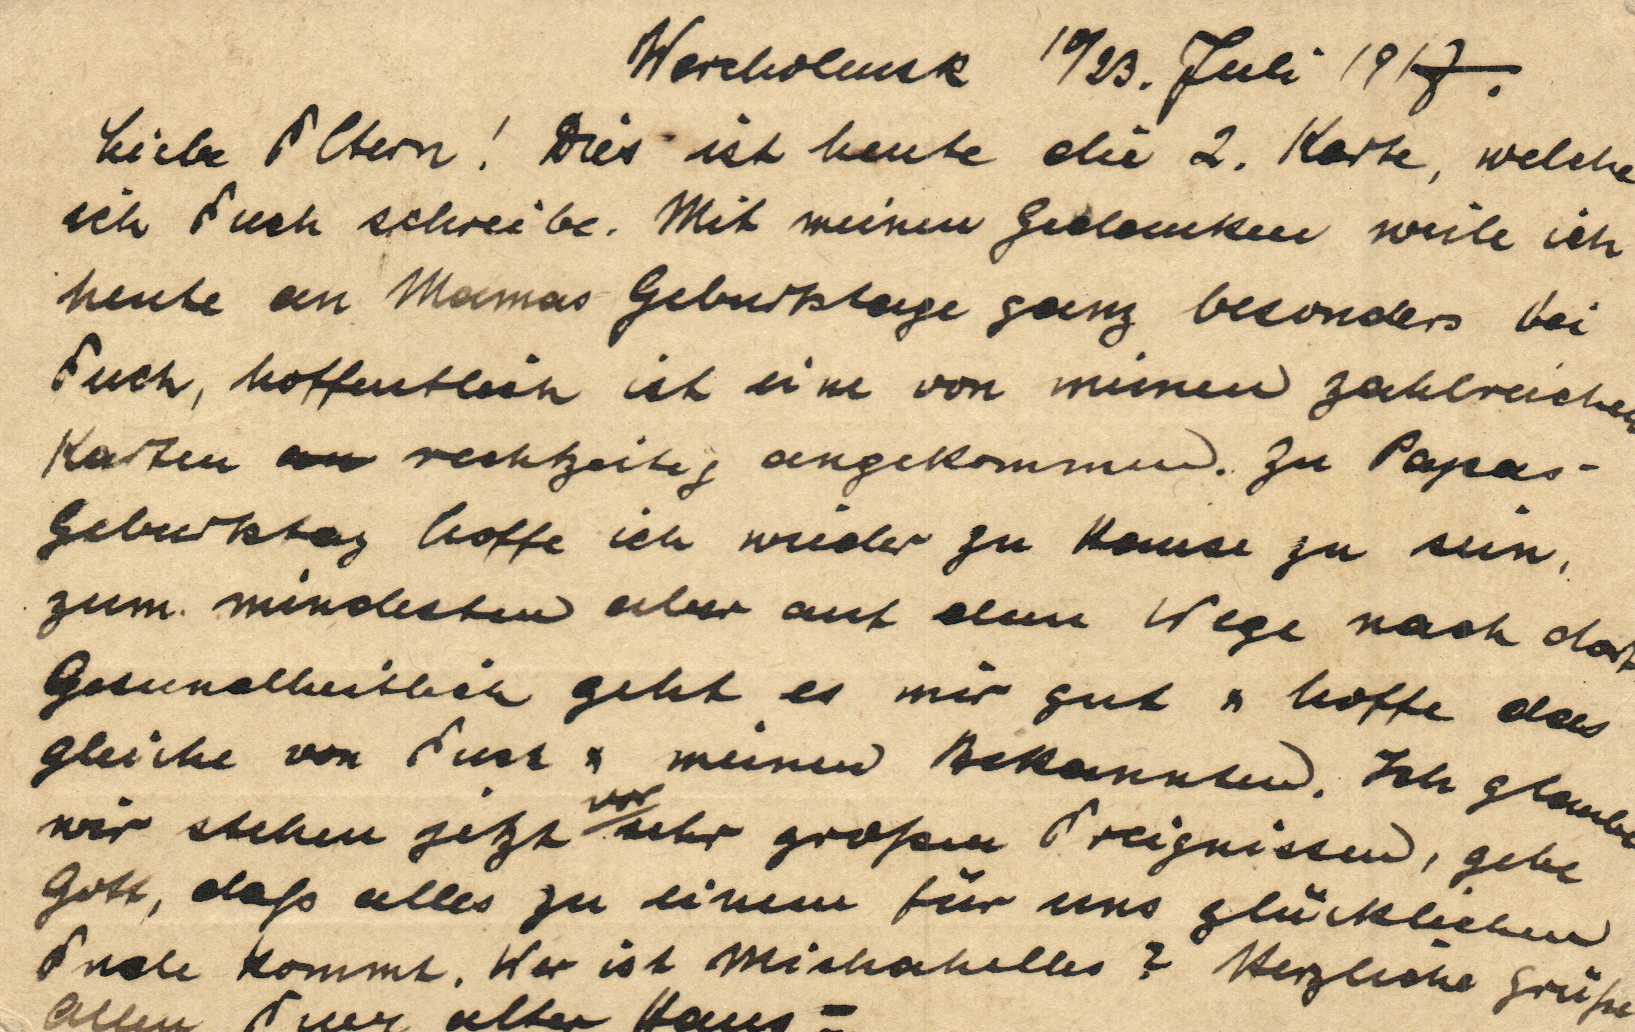 Wercholensk 10/23. Juli 1917.
Liebe Eltern! Dies ist heute die 2. Karte, welche
ich Euch schreibe. Mit meinen Gedanken weile ich
heute an Mamas Geburtstage ganz besonders bei
Euch, hoffentlich ist eine von meinen zahlreichen
Karten an rechtzeitig angekommen. Zu Papas-
Geburtstag hoffe ich wieder zu Hause zu sein,
zum mindesten aber auf dem Wege nach dort
Gesundheitlich geht es mir gut & hoffe das
gleiche von Euch & meinen Bekannten. Ich glaube
wir stehen jetzt vor sehr großen Ereignissen, gebe
Gott, daß alles zu einem für uns glücklichen
Ende kommt. Wer ist Michahelles? Herzliche Grüße
Allen Euer alter Hans=